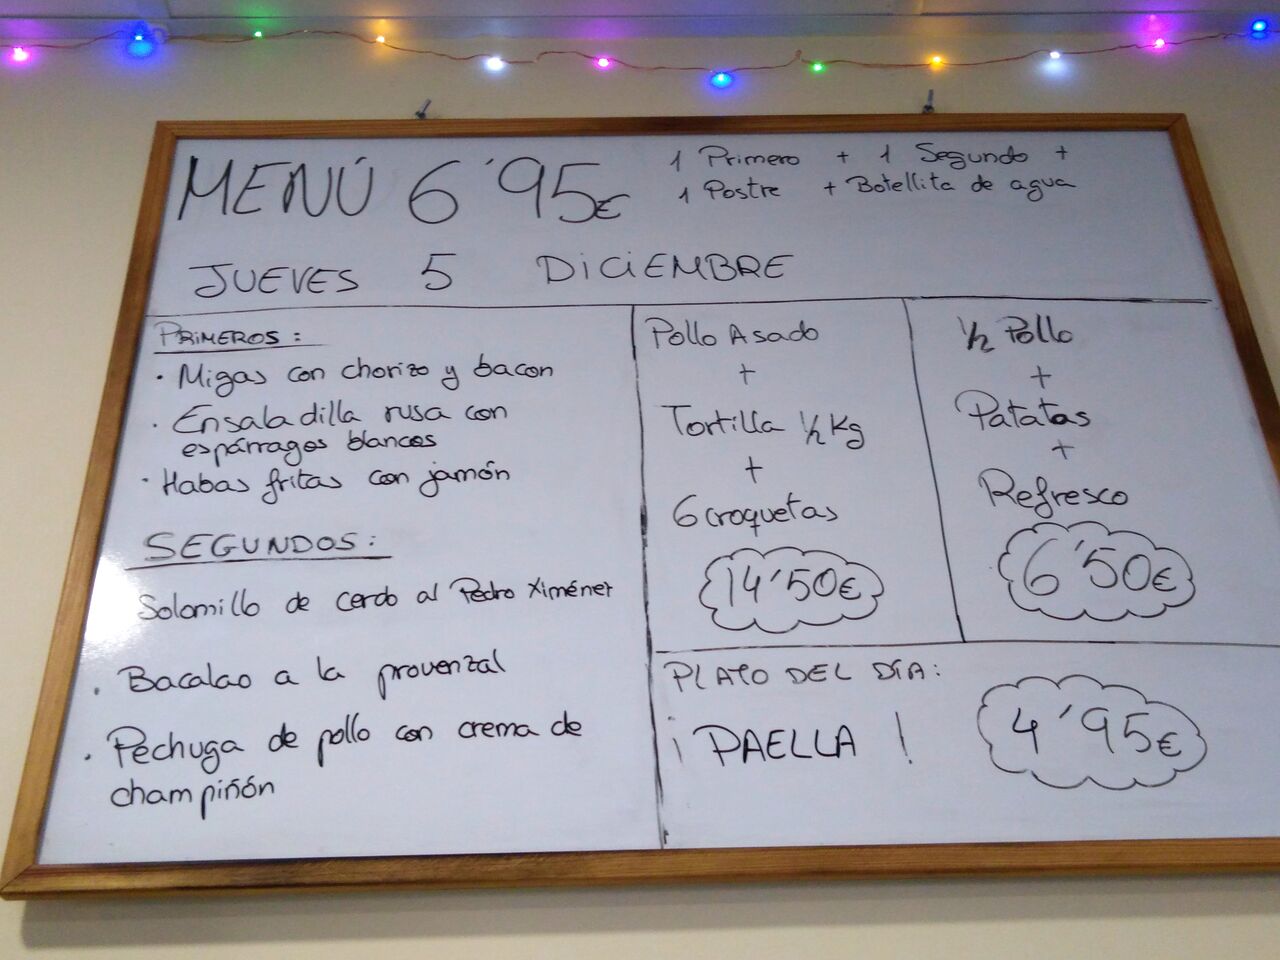 MENÚ 6'95€
1 Primero + 1 Segundo +
1 Postre + Botellita de agua
JUEVES 5 DICIEMBRE
PRIMEROS:
· Migas con chorizo y bacon
· Ensaladilla rusa con
espárragos blancos
· Habas fritas con jamón
SEGUNDOS:
Solomillo de cerdo al Pedro Ximénez
· Bacalao a la provenzal
· Pechuga de pollo con crema de
champiñón
Pollo Asado
+
Tortilla 1/2 Kg
+
6 croquetas
14'50€
1/2 Pollo
+
Patatas
+
Refresco
6'50€
PLATO DEL DÍA:
¡PAELLA!
4'95€